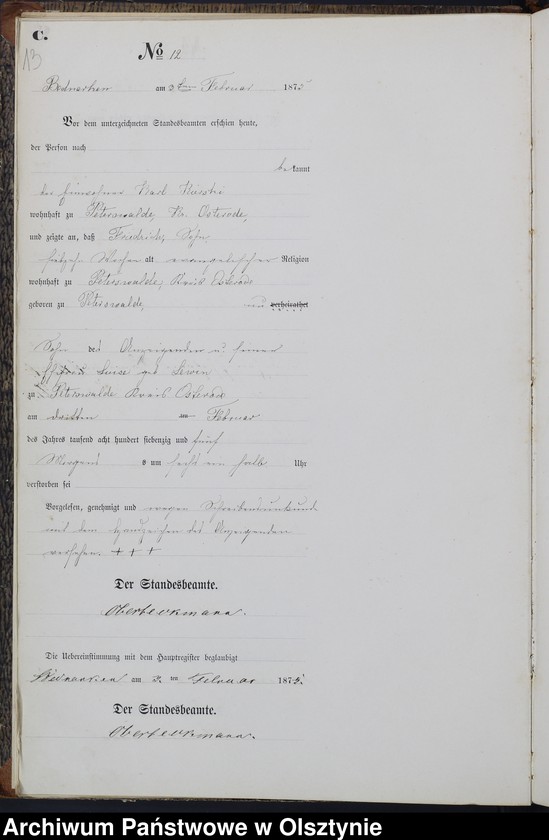 C.
13
No 12
Bednarken am 3ten Februar 1875
Vor dem unterzeichneten Standesbeamten erschien heute,
der Person nach
bekannt
der Einwohner Karl
wohnhaft zu Peterswalde, Kr. Osterode,
und zeigte an, daß Friedrich, Sohn,
Wochen alt evangelischer Religion
wohnhaft zu Peterswalde, Kreis Osterode
geboren zu Peterswalde, verheirathet
Sohn des Anzeigenden u. seiner
Ehefrau Luise geb
zu Peterswalde Kreis Osterode
am dritten ten Februar
des Jahres tausend acht hundert siebenzig und fünf
Morgens s um sechs ein halb Uhr
verstorben sei
Vorgelesen, genehmigt und wegen Schreibensunkunde
mit dem Handzeichen des Anzeigenden
versehen. + + +
Der Standesbeamte.
Oberbeckmann.
Die Uebereinstimmung mit dem Hauptregister beglaubigt
Bednarken am 3. ten Februar 1875.
Der Standesbeamte.
Oberbeckmann.
Archiwum Państwowe w Olsztynie